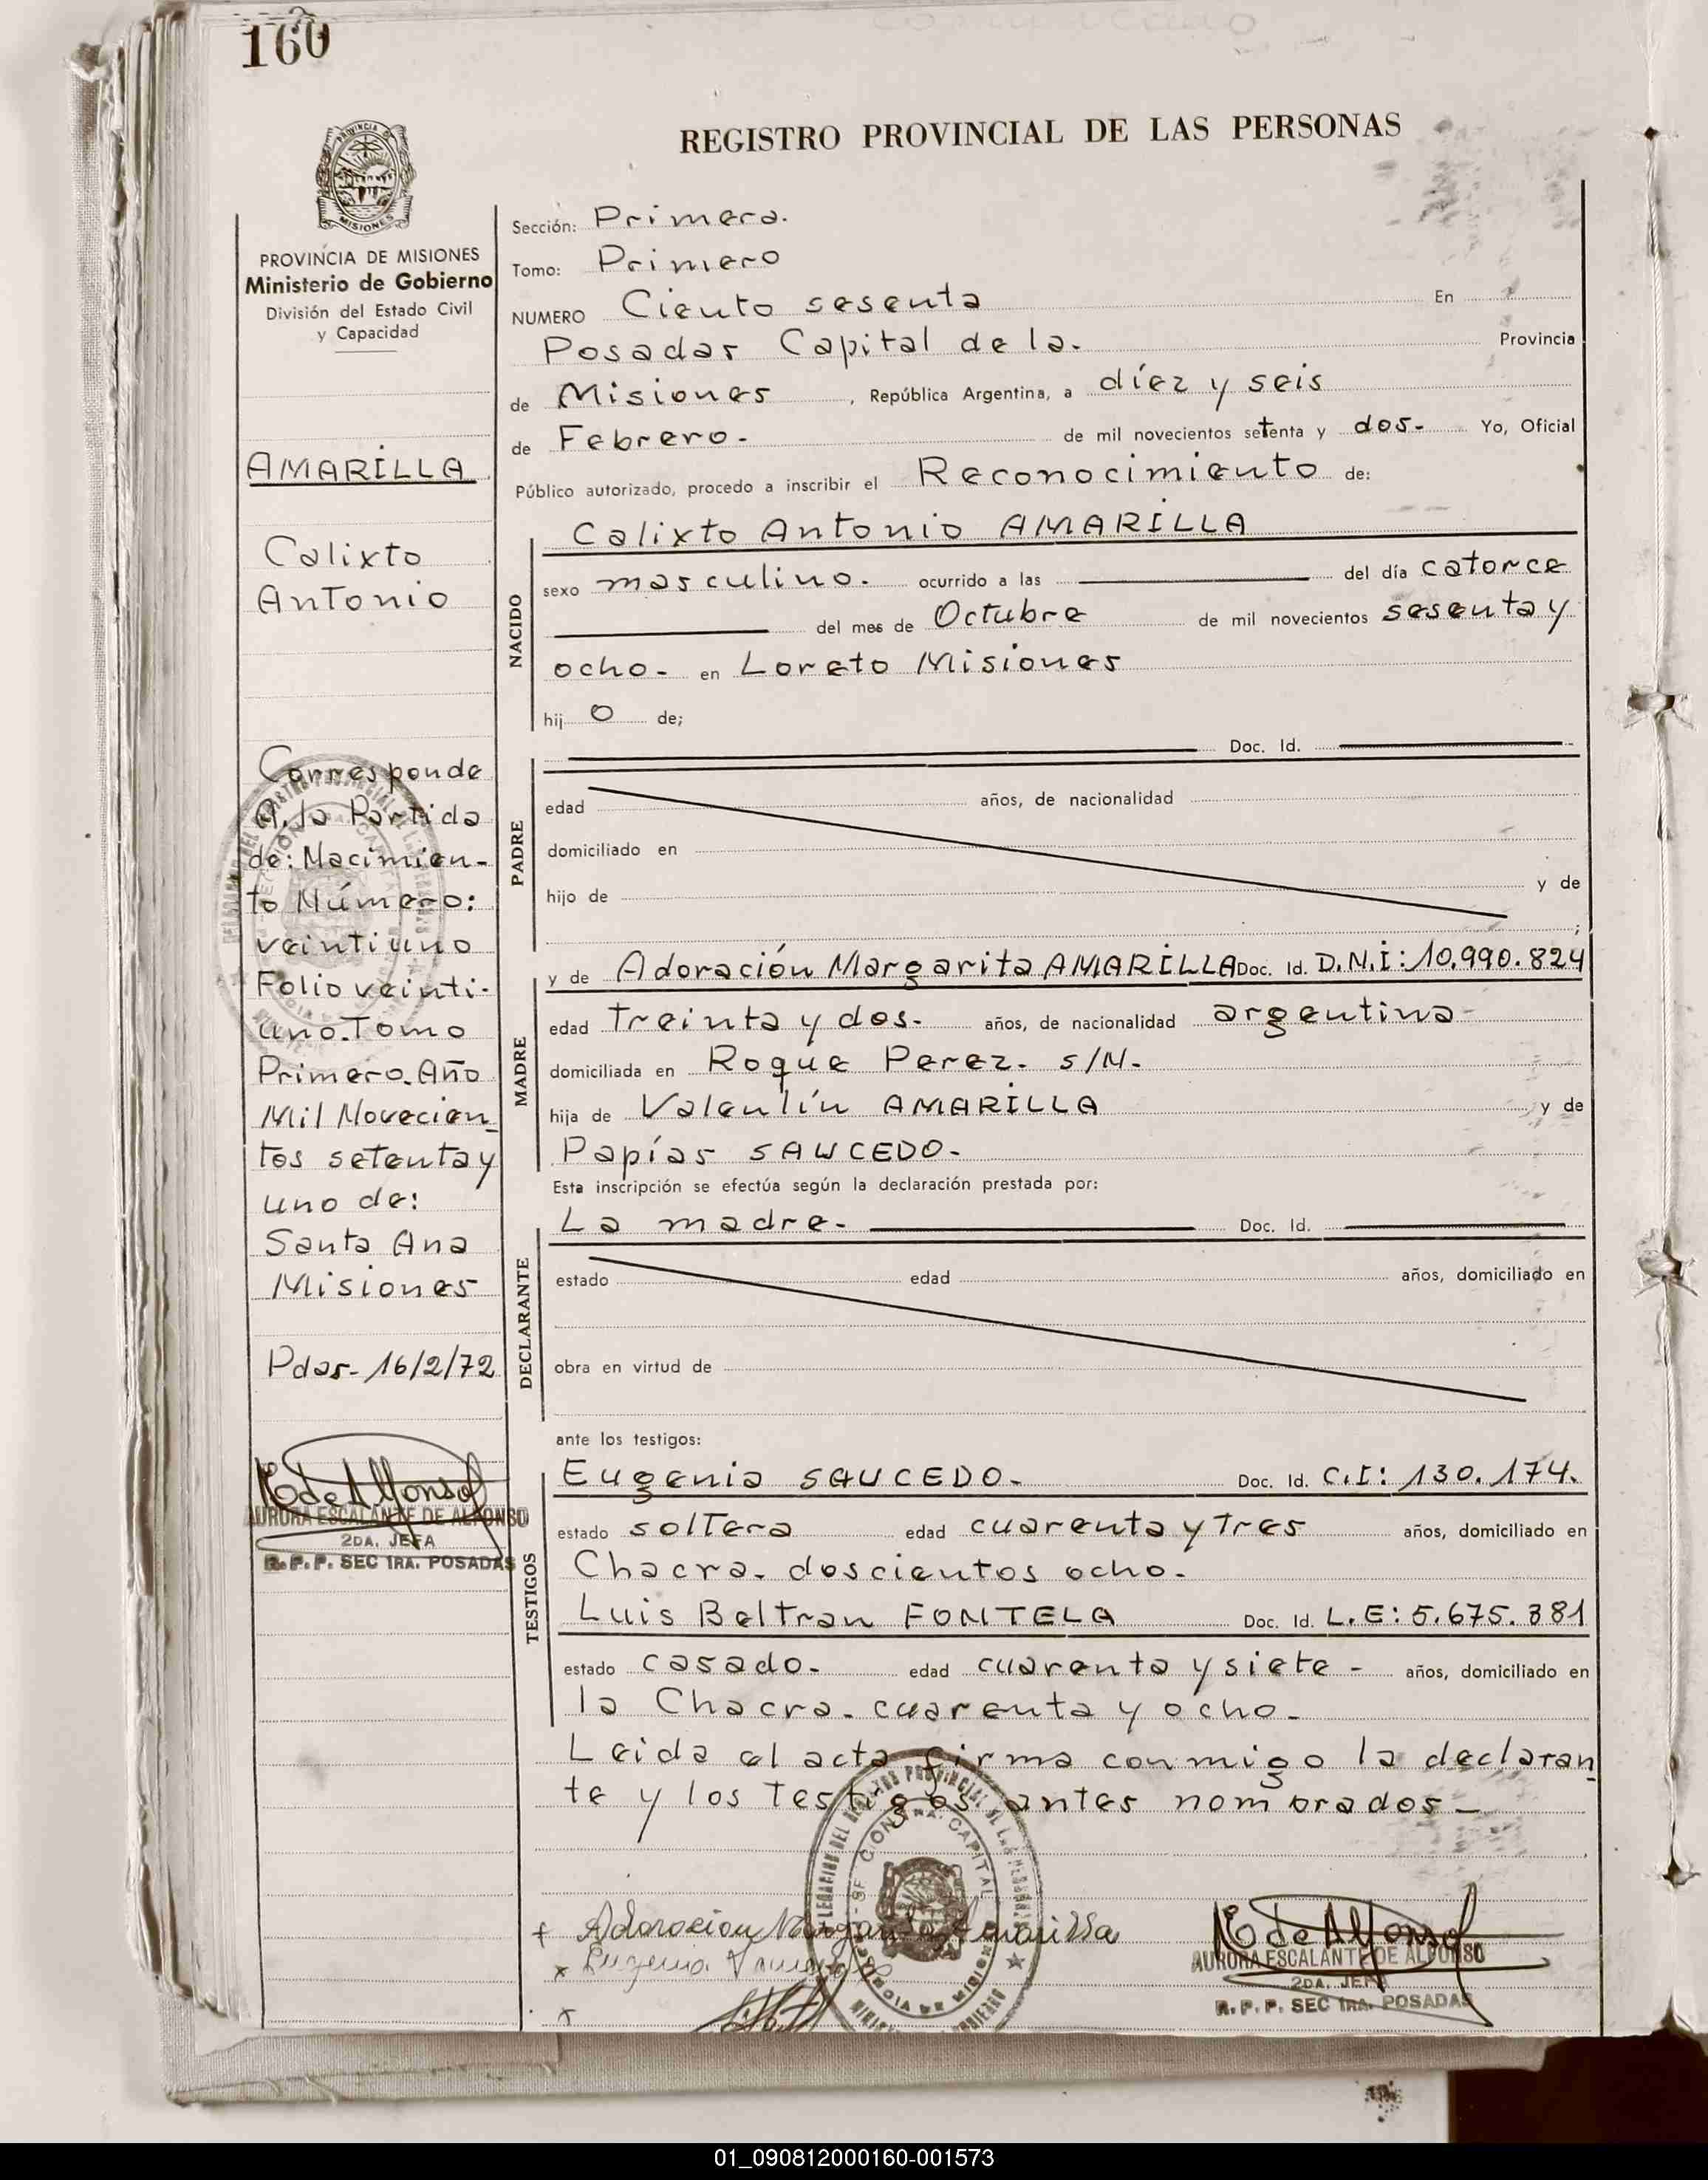 160
REGISTRO PROVINCIAL DE LAS PERSONAS
PROVINCIA DE MISIONES
Ministerio de Gobierno
División del Estado Civil
y Capacidad
AMARILLA
Calixto
Antonio
Corresponde
A. la Partida
de: Nacimien-
to Número:
veintiuno
Folio veinti-
uno. Tomo
Primero. Año
Mil Novecien
tos setenta y
uno de:
Santa Ana
Misiones
Pdas- 16/2/72
AURORA ESCALANTE DE ALFONSO
2DA. JEFA
R. P. P. SEC 1RA. POSADAS
Sección: Primera.
Tomo: Primero
NUMERO Ciento sesenta En
Posadas Capital de la. Provincia
de Misiones, República Argentina, a díez y seis
de Febrero. de mil novecientos setenta y dos- Yo, Oficial
Público autorizado, procedo a inscribir el Reconocimiento de:
NACIDO
Calixto Antonio AMARILLA
sexo masculino. ocurrido a las del día catorce
del mes de Octubre de mil novecientos sesenta y
ocho- en Loreto Misiones
hij o de;
Doc. Id.
PADRE
edad años, de nacionalidad
domiciliado en
hijo de y de
;
MADRE
y de Adoración Margarita AMARILLA Doc. Id. D.N.I: 10.990.824
edad Treinta y dos. años, de nacionalidad argentina
domiciliada en Roque Perez. s/N.
hija de Valentín AMARILLA y de
Papías SAUCEDO-
Esta inscripción se efectúa según la declaración prestada por:
DECLARANTE
La madre- Doc. Id.
estado edad años, domiciliado en
obra en virtud de
ante los testigos:
TESTIGOS
Eugenia SAUCEDO- Doc. Id. C.I: 130.174.
estado soltera edad cuarenta y tres años, domiciliado en
Chacra. doscientos ocho-
Luis Beltran FONTELA Doc. Id. L.E: 5.675.381
estado casado- edad cuarenta y siete - años, domiciliado en
la Chacra. cuarenta y ocho-
Leida el acta firma conmigo la declaran
te y los testigos antes nombrados-
+ Adoracion Margarita Amarilla
x Eugenia
x
AURORA ESCALANTE DE ALFONSO
2DA. JEFA
R. P. P. SEC 1RA. POSADAS
01_090812000160-001573